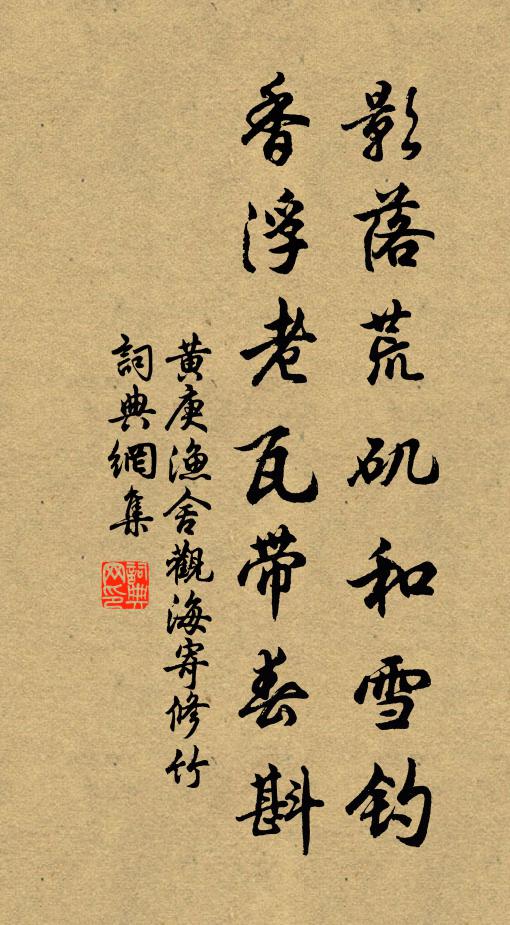 影落荒矶和雪钓
香浮老瓦带春斟
黄庚漁舍觀海寄修竹
詞典網集
詞典网印